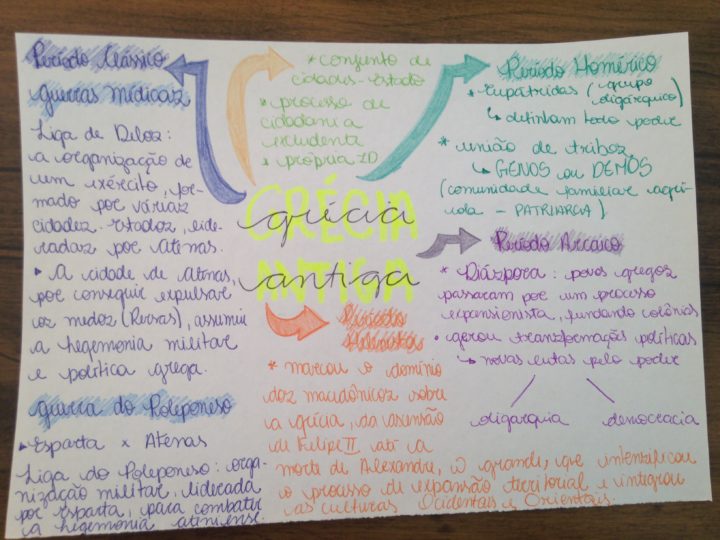 Período Clássico
guerras médicas
Liga de Delos:
a organização de
um exército, for-
mado por várias
cidades-Estados, lide-
radas por Atenas.
▸ A cidade de Atenas,
por conseguir expulsar
os medos (Persas), assumiu
a hegemonia militar
e política grega.
guerra do Poleponeso
▸ Esparta x Atenas
Liga do Poleponeso: orga-
nização militar, liderada
por Esparta, para combater
a hegemonia ateniense.
* conjunto de
cidades-Estado
* processo de
cidadania
excludente
* própria ID
GRÉCIA
grécia
ANTIGA
antiga
Período Homérico
* Eupátridas (grupo
oligárquico)
↳ detinham todo poder
* união de tribos
↳ GENOS ou DEMOS
(comunidade familiar agrí-
cola - PATRIARCA)
Período Arcaico
* Diáspora: povos gregos
passaram por um processo
expansionista, fundando colônias
• gerou transformações políticas
↳ novas lutas pelo poder
oligarquia democracia
Período
Helenista
* marcou o domínio
dos macedônicos sobre
a grécia, da ascensão
de Felipe II até a
morte de Alexandre, o grande, que intensificou
o processo de expansão territorial e integrou
as culturas Ocidentais e Orientais.